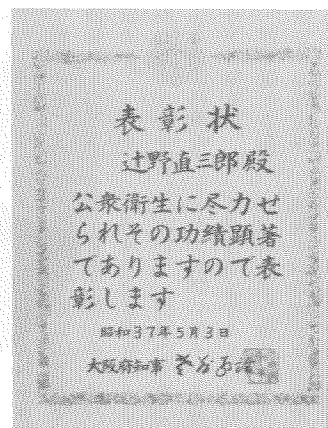 表彰状
辻野直三郎殿
公衆衛生に尽力せ
られその功績顕著
でありますので表
彰します
昭和37年5月3日
大阪府知事